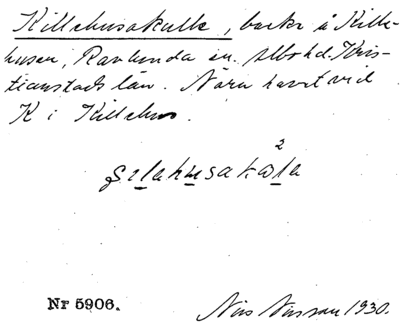 Killehusakulle, backe å Kille-
husen, Ravlunda sn. Albo hd. Kris-
tianstads län. Nära havet vid
K i Killehus.
Nr 5906.
Nils Nilsson 1930.